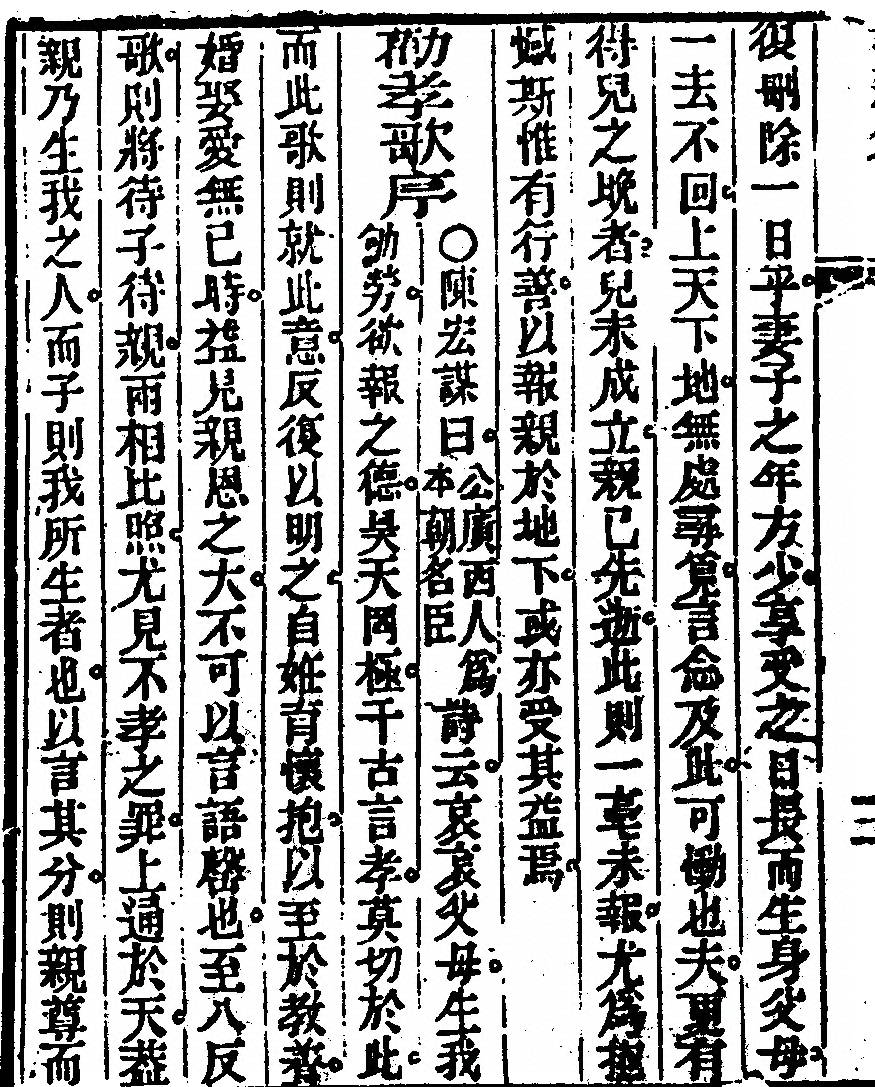 復刪除一日乎妻子之年方少享受之日長而生身父母
一去不回上天下地無處尋覓言念及此可慟也夫更有
得兒之晚者兒未成立親已先逝此則一毫未報尤爲
憾斯惟有行善以報親於地下或亦受其益焉
勸孝歌序
○陳宏謀曰公廣西人爲本朝名臣詩云哀哀父母生我
劬勞欲報之德昊天罔極千古言孝莫切於此
而此歌則就此意反復以明之自姙育懷抱以至於教養
婚娶愛無已時益見親恩之大不可以言語罄也至入反
歌則將待子待親兩相比照尤見不孝之罪上通於天蓋
親乃生我之人而子則我所生者也以言其分則親尊而